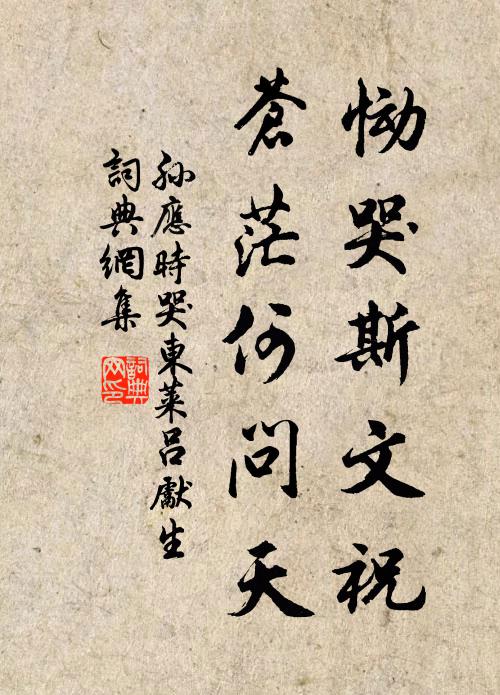 恸哭斯文祝
蒼茫何問天
孫應時哭東萊呂獻生
詞典網集
詞典網印